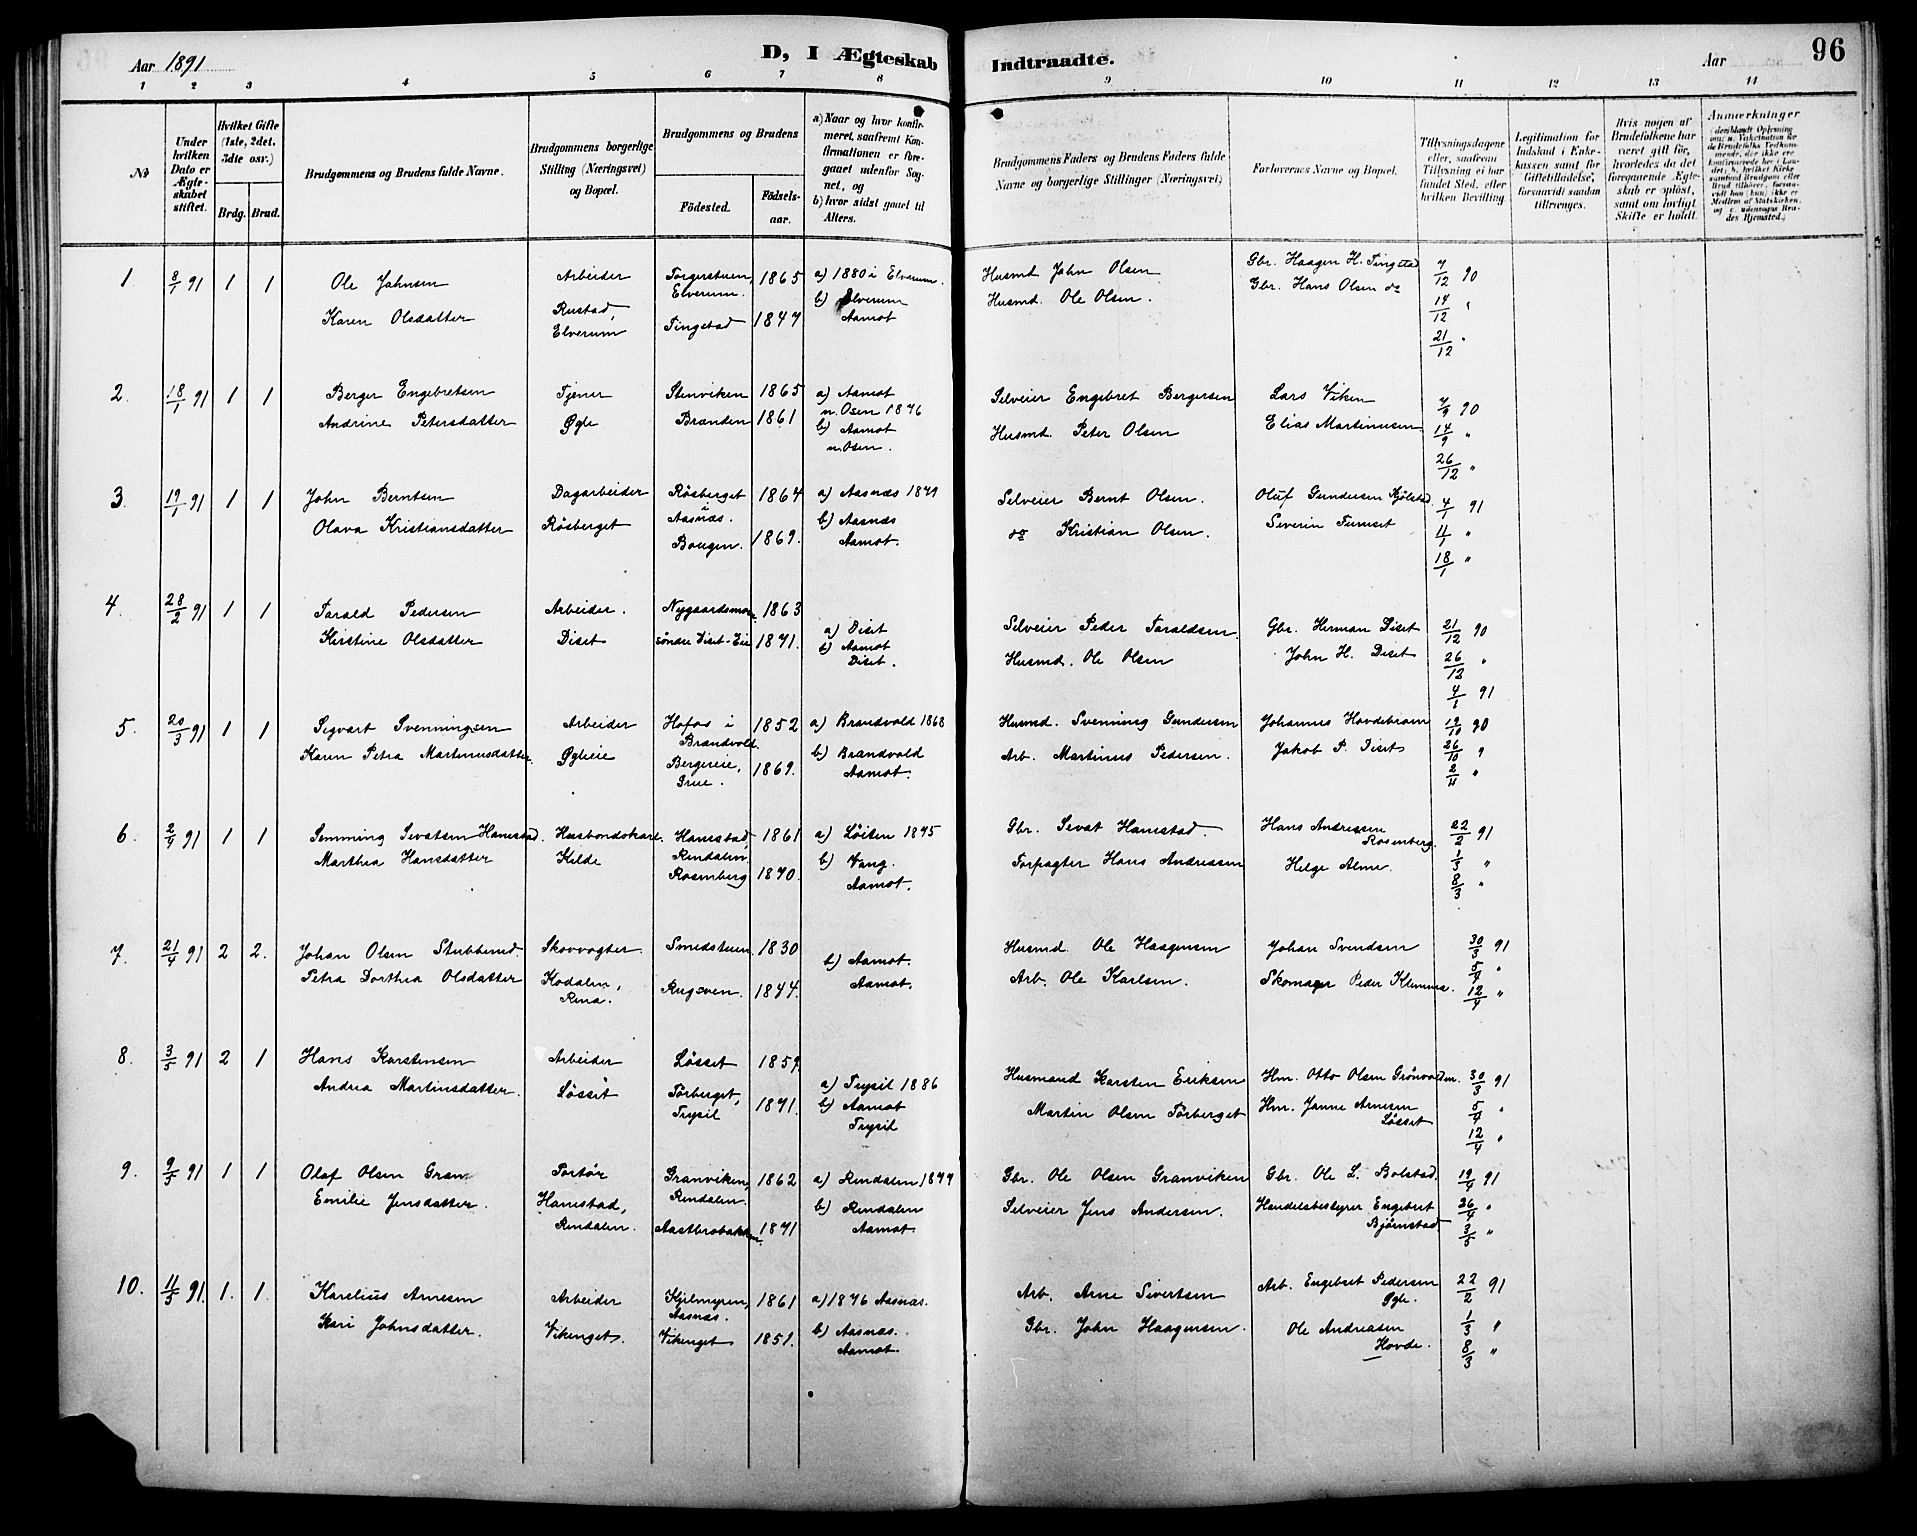 Aar 1891
D, I Ægteskab Indtraadte.
Aar
96
1 2 3 4 5 6 7 8 9 10 11 12 13 14
No
Under hvilken Dato er Ægteskabet stiftet.
Hvilket Gifte (1ste, 2det, 3die osv.)
Brdg. Brud.
Brudgommens og Brudens fulde Navne.
Brudgommens borgerlige Stilling (Næringsvei) og Bopæl.
Brudgommens og Brudens
Födested.
Födselsaar.
a) Naar og hvor konfirmeret, saafremt Konfirmationen er foregaaet udenfor Sognet, og
b) hvor sidst gaaet til Alters.
Brudgommens Faders og Brudens Faders fulde Navne og borgerlige Stillinger (Næringsvei)
Forlovernes Navne og Bopæl.
Tillysningsdagene eller, saafremt Tillysning ei har fundet Sted, efter hvilken Bevilling.
Legitimation for Indskud i Enkekassen samt for Giftetilladelse, forsaavidt saadan tiltrænges.
Hvis nogen af Brudefolkene har været gift för, hvorledes da det foregaaende Ægteskab er oplöst, samt om lovligt Skifte er holdt.
Anmærkninger
1. 8/1 91 1 1 Ole Johnsen Arbeider Torgerstuen, Elverum. 1865 a) 1880 i Elverum. Husmd John Olsen Gbr. Haagen H. Tingstad 7/12 90
Karen Olsdatter Rustad, Elverum Tingstad 1847 b) Elverum Aamot Husmd. Ole Olsen. Gbr. Hans Olsen do 14/12 "
21/12 "
2. 18/1 91 1 1 Berger Engebretsen Tjener Stenviken 1865 a) Aamot n. Osen 1876 Selveier Engebret Bergersen Lars Viken 7/9 90
Andrine Petersdatter Øgle Branden 1861 b) Aamot n. Osen. Husmd. Peter Olsen Elias Martinusen 14/9 "
26/12 "
3. 19/1 91 1 1 John Berntsen Dagarbeider Rösberget i Aasnæs. 1864 a) Aasnæs 1879 Selveier Bernt Olsen. Oluf Gundersen Kjölstad 4/1 91
Olava Kristiansdatter Rösberget Bougen. 1869. b) Aasnæs Aamot. do Kristian Olsen. Severin Furuset 11/1 "
18/1 "
4. 28/2 91 1 1 Tarald Pedersen Arbeider. Nygaardsmoen 1863 Selveier Peder Taraldsen. Gbr. Herman Diset 21/12 90
Kristine Olsdatter Diset söndre Diset-Eie 1871. a) Diset b) Aamot Diset. Husmd. Ole Olsen John H. Diset 26/12 "
4/1 91
5. 20/3 91 1 1 Sigvart Svenningsen Arbeider Hofos i Brandvold. 1852 a) Brandvold 1868 Husmd. Svenning Gundersen Johannes Hovdebraaten 19/10 90
Karen Petra Martinusdatter. Ögleeie Bergereie, Grue. 1869. b) Brandvold Aamot. Arb. Martinus Pedersen. Jakob P. Diset 26/10 "
2/11 "
6. 2/4 91 1 1 Semming Sivatsen Hanestad. Husbondskarl. Hanestad, Rendalen 1861 a) Löiten 1875 Gbr. Sivat Hanestad. Hans Andreasen Rosenberg. 22/2 91
Marthea Hansdatter Kilde Rosenberg 1870. b) Vang. Aamot. Forpagter Hans Andreasen Helge Alme. 1/3 "
8/3 "
7. 21/4 91 2 2. Johan Olsen Stubberud Skovvogter Smedstuen 1830 b) Aamot. Husmd. Ole Haagensen Johan Svendsen 30/3 91
Petra Dorthea Olsdatter Kodalen, Rena. Rugsven. 1844. Aamot. Arb. Ole Karlsen. Skomager Peder Klemma. 5/4 "
12/4 "
8. 3/5 91 2 1 Hans Karstensen Arbeider Lösset 1859 Husmand Karsten Eriksen Hm. Otto Olsen Grönvolden. 30/3 91
Andrea Martinsdatter. Lösset Törberget, Trysil 1871. a) Trysil 1886 b) Aamot Trysil Martin Olsen Törberget Hm. Janne Arnesen Lösset 5/4 "
12/4 "
9. 9/5 91 1 1 Olaf Olsen Gran Portör Granviken, Rendalen. 1862 a) Rendalen 1877 Gbr. Ole Olsen Granviken Gbr. Ole L. Bolstad. 19/4 91
Emilie Jensdatter. Hanestad, Rendalen. Aastbrobakken. 1871 b) Rendalen Aamot Selveier Jens Andersen. Handelsbestyrer Engebret Bjørnstad 26/4 "
3/5 "
10. 11/5 91. 1. 1. Karelius Arnesen Arbeider Kjilmyren, Aasnæs. 1861 a) 1876 Aasnæs. Arb. Arne Sivertsen Arb. Engebret Pedersen Ögle. 22/2 91
Kari Johnsdatter. Vikenget. Vikenget 1851. b) Aasnæs. Aamot. Gbr. John Haagensen. Ole Andreasen Hovde. 1/3 "
8/3 "